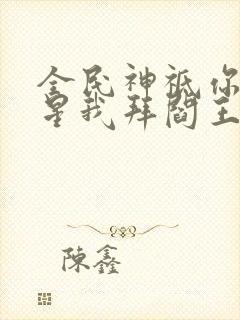 全民神祇你
星我拜閻王
陳鑫